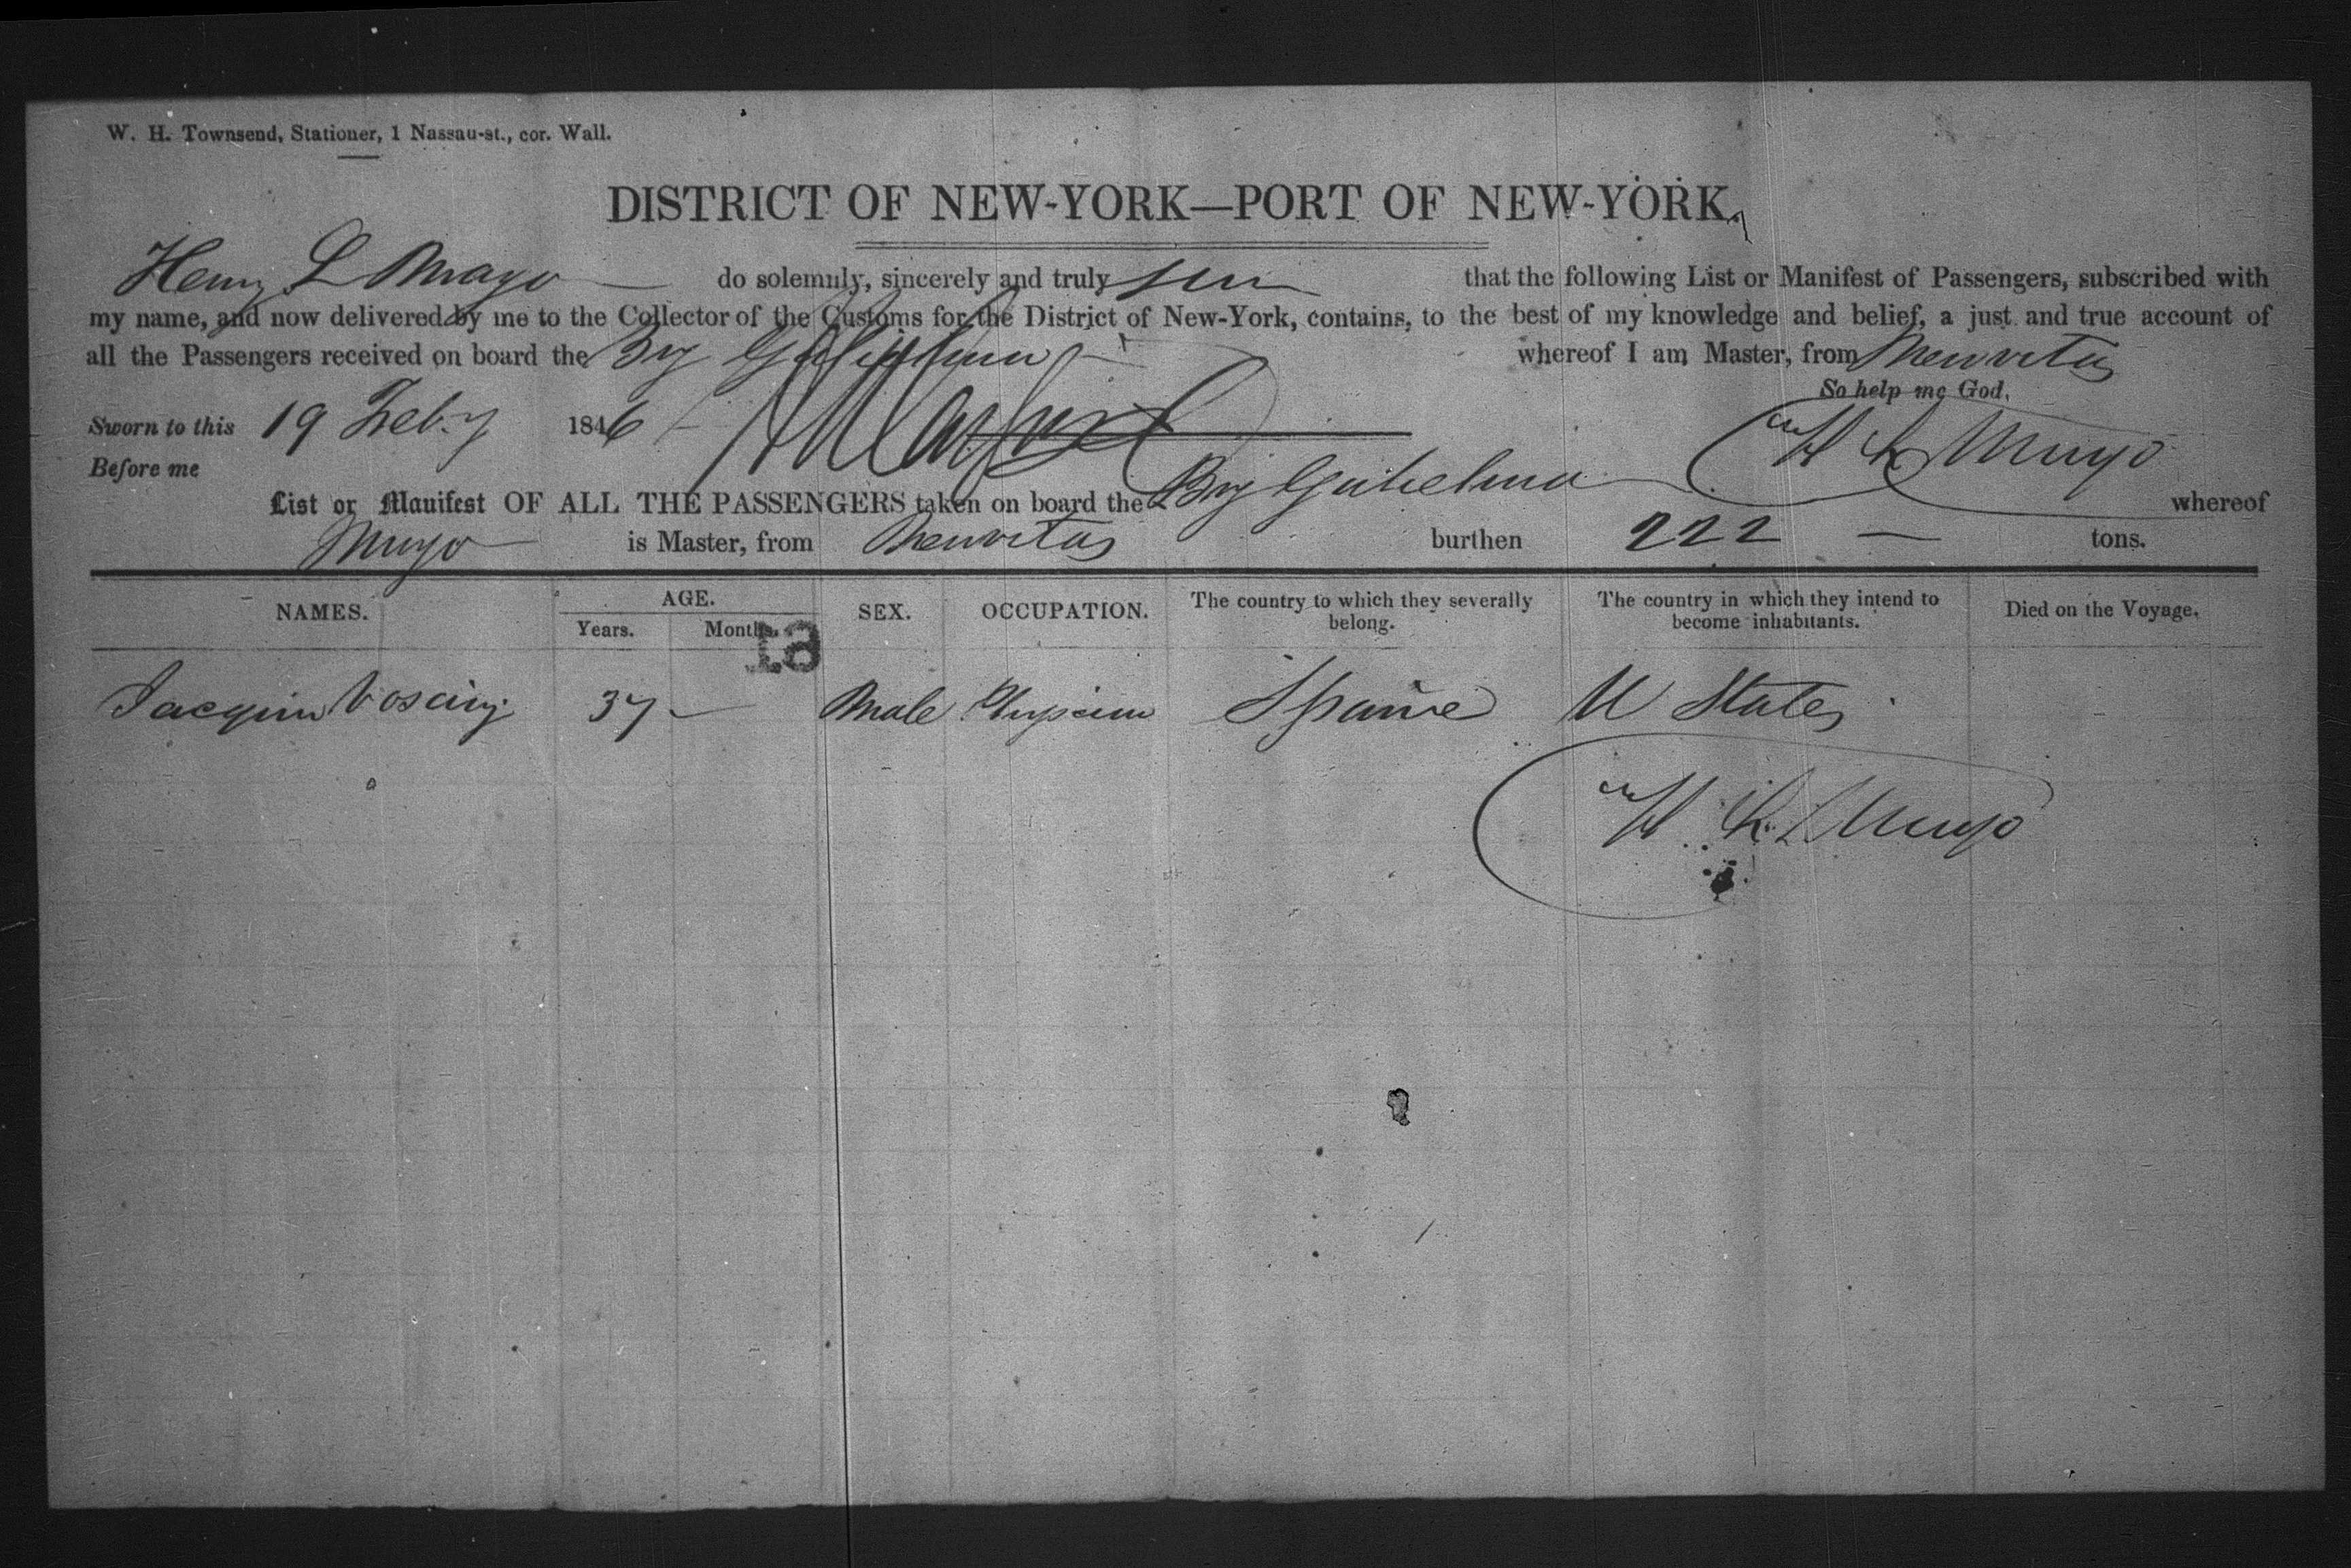 W. H. Townsend, Stationer, 1 Nassau-st., cor. Wall.
DISTRICT OF NEW-YORK—PORT OF NEW-YORK,
Henry L Mayo do solemnly, sincerely and truly that the following List or Manifest of Passengers, subscribed with
my name, and now delivered by me to the Collector of the Customs for the District of New-York, contains, to the best of my knowledge and belief, a just and true account of
all the Passengers received on board the Brig whereof I am Master, from Neuvitas
So help me God.
Sworn to this 19 Feby 1846 H L Mayo
Before me
List or Manifest OF ALL THE PASSENGERS taken on board the Brig Gulielma whereof
Mayo is Master, from Neuvitas burthen 222 — tons.
NAMES. AGE. SEX. OCCUPATION. The country to which they severally belong. The country in which they intend to become inhabitants. Died on the Voyage.
Years. Months.
19
37 — Male Physician Spaine U States
H L Mayo